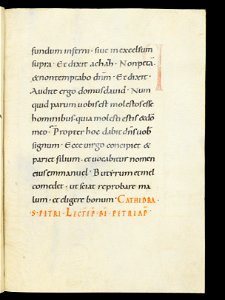 fundum inferni · sive in excelsum
supra · Et dixit achaz · Non petā
& non temptabo dnm̄ · Et dixit ·
Audite ergo domus david · Num
quid parum vobis est molestos esse
hominibus · quia molesti estis & dō
meo · Propter hoc dabit dns̄ vob̄
signum · Ecce virgo concipiet &
pariet filium · et vocabitur nomen
eius emmanuel · Butyrum et mel
comedet · ut sciat reprobare ma
lum · et eligere bonum · CATHEDRA ·
S · PETRI ·